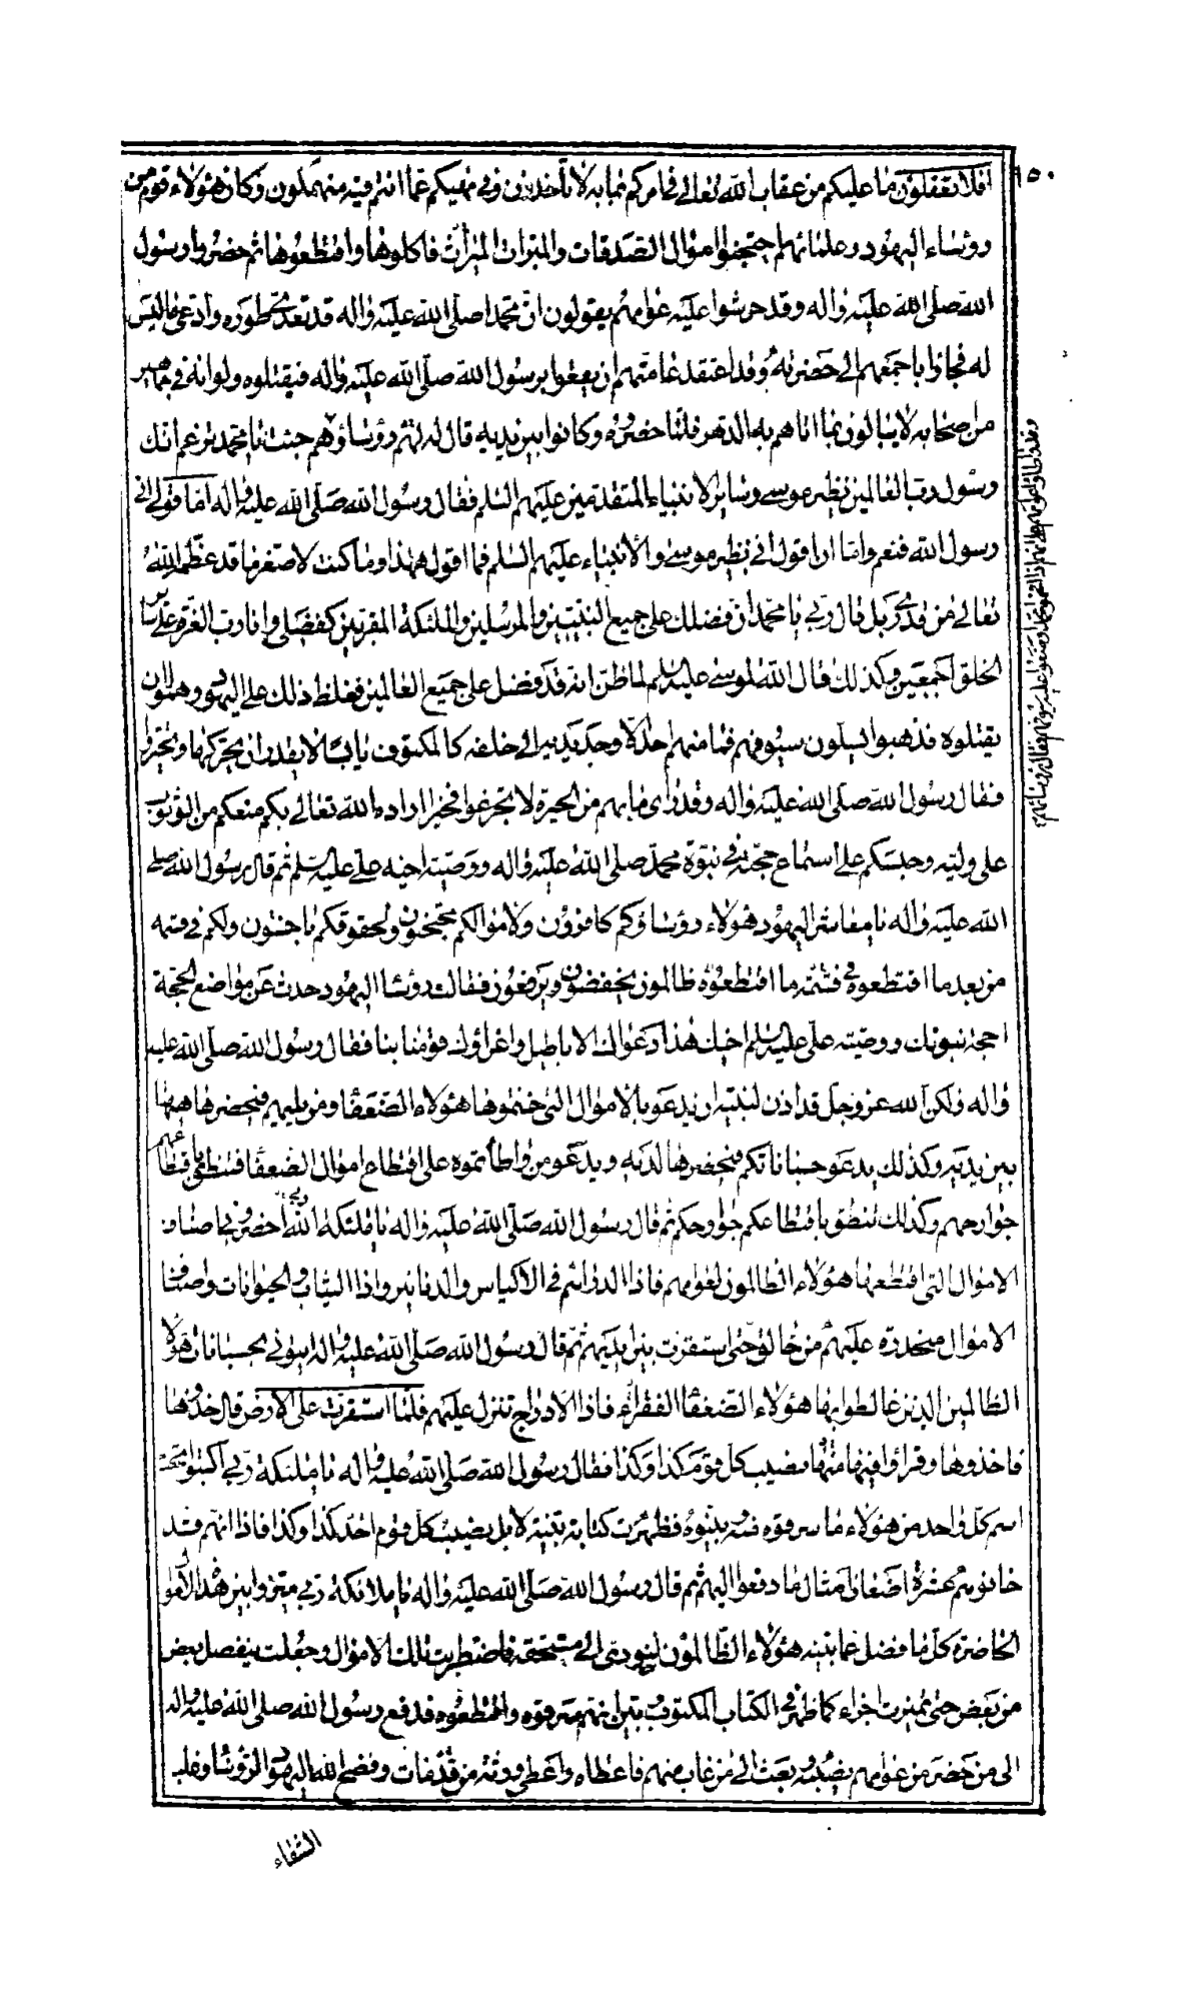 ١٥٠
افلا تعقلون ما عليكم من عقاب الله تعالى في امركم بما به لا تأخذون وفي نهيكم عما انتم فيه منهمكون وكان هؤلاء قوم من
رؤساء اليهود وعلمائهم احتجنوا اموال الصدقات والمبرات فاكلوها واقتطعوها ثم حضروا رسول
الله صلى الله عليه واله وقد حرشوا عليه عوامهم يقولون ان محمدا صلى الله عليه واله قد تعدى طوره وادعى ما ليس
له فجاؤا باجمعهم الى حضرته وقد اعتقد عامتهم ان يقعوا برسول الله صلى الله عليه واله فيقتلوه ولو انه في جماهير
من اصحابه لا يبالون بما اتاهم به الدهر فلما حضروه وكانوا بين يديه قال لهم رؤساؤهم جئت يا محمد تزعم انك
رسول رب العالمين نظير موسى وسائر الانبياء المتقدمين عليهم السلم فقال رسول الله صلى الله عليه واله اما قولي اني
رسول الله فنعم واما ان اقول اني نظير موسى والانبياء عليهم السلم فما اقول هذا وما كنت لاصغر ما قد عظمه الله
تعالى من قدري بل قال ربي يا محمد ان فضلك على جميع النبيين والمرسلين والملئكة المقربين كفضلي وانا رب العزة على سائر
الخلق اجمعين وكذلك قال الله لموسى عليه السلم لما ظن انه قد فضل على جميع العالمين فغلظ ذلك على اليهود وهموا ان
يقتلوه فذهبوا يسلون سيوفهم فما منهم احد الا وجد يديه الى خلفه كالمكتوف يابسا لا يقدر ان يحركها وتحيروا
فقال رسول الله صلى الله عليه واله وقد رأى ما بهم من الحيرة لا تجزعوا فخير اراده الله تعالى بكم منعكم من الوثوب
على وليه وحبسكم على استماع حججه في نبوة محمد صلى الله عليه واله ووصية اخيه علي عليه السلم ثم قال رسول الله صلى
الله عليه واله يا معاشر اليهود هؤلاء رؤساؤكم كافرون ولاموالكم محتجنون ولحقوقكم باخسون ولكم في قسمة
من بعد ما اقتطعوه في قسمة ما اقتطعوه ظالمون يخفضون ويرفعون فقالت رؤساء اليهود حدث عن مواضع الحجة
احجة نبوتك ووصية علي عليه السلم اخيك هذا دعواك الاباطيل واغراؤك قومنا بنا فقال رسول الله صلى الله عليه
واله ولكن الله عز وجل قد اذن لنبيه ان يدعو بالاموال التي خنتموها هؤلاء الضعفاء ومن يليهم فيحضرها ههنا
بين يديه وكذلك يدعو حساباتكم فيحضرها لديه ويدعو من واطأتموه على اقتطاع اموال الضعفا فينطق باقتطاعهم
جوارحهم وكذلك تنطق باقتطاعكم جوارحكم ثم قال رسول الله صلى الله عليه واله يا ملئكة ربي احضروني اصناف
الاموال التي اقتطعها هؤلاء الظالمون لعوامهم فاذا الدراهم في الاكياس والدنانير واذا الثياب والحيوانات واصناف
الاموال منحدرة عليهم من حالق حتى استقرت بين ايديهم ثم قال رسول الله صلى الله عليه واله ايتوني بحسبانات هؤلاء
الظالمين الذين غالطوا بها هؤلاء الضعفا الفقراء فاذا الادراج تنزل عليهم فلما استقرت على الارض قال خذوها
فاخذوها وقراؤا فيها نصيب كل قوم كذا وكذا فقال رسول الله صلى الله عليه واله يا ملئكة ربي اكتبوا تحت
اسم كل واحد من هؤلاء ما سرقوه منه وبينوه فظهرت كتابة بينة لا بل نصيب كل قوم احد كذا وكذا فاذا انهم قد
خانوهم عشرة اضعاف امثال ما دفعوا اليهم ثم قال رسول الله صلى الله عليه واله يا ملائكة ربي ميزوا بين هذه الاموال
الحاضرة كل ما فضل عما بينه هؤلاء الظالمون ليودى الى مستحقه فاضطربت تلك الاموال وجعلت ينفصل بعض
من بعض حتى تميزت اجزاء كما ظهر في الكتاب المكتوب وبين انهم سرقوه واقتطعوه فدفع رسول الله صلى الله عليه واله
الى من حضر من عوامهم نصيبه وبعث الى من غاب منهم فاعطاه واعطى ورثة من قد مات وفضح الله اليهود الرؤسا وغلب
الشقاء